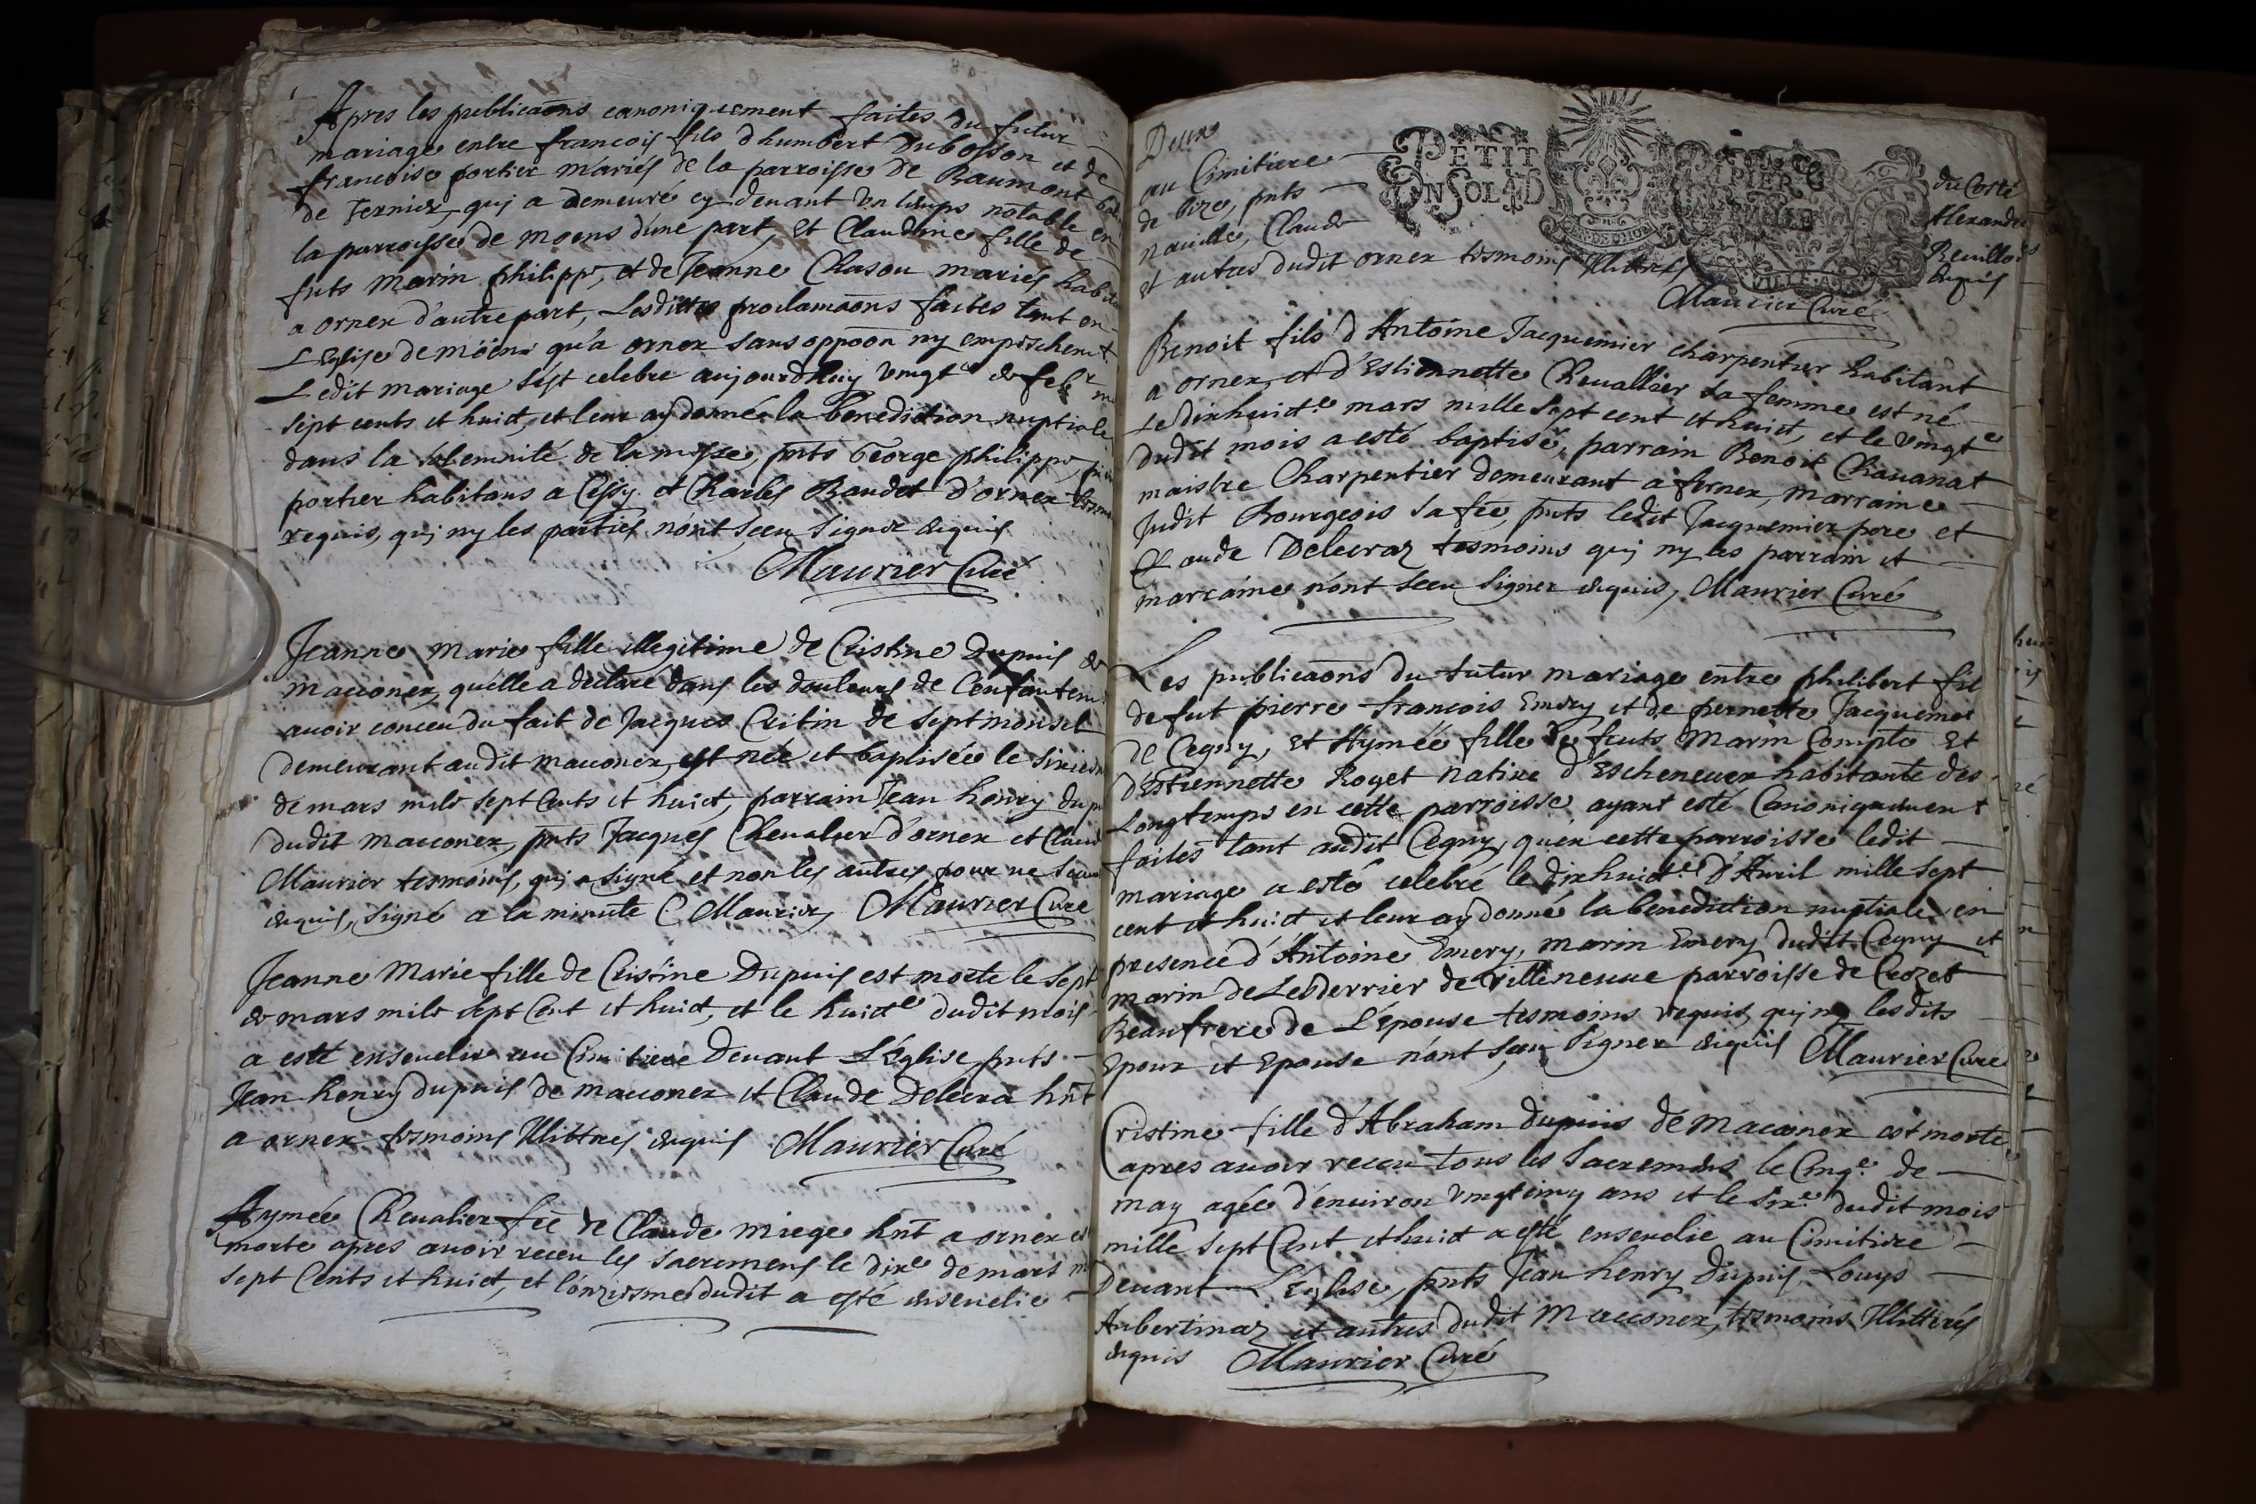 Apres les publicaõns canoniquement faites du futur
mariage entre francois fils d'humbert Dubosson et de
francoise portier mariés de la parroisse de Baumont
de Ternier, quj a demeuré cy devant un temps notable en
la parroisse de moens d'une part, Et Claudine fille de
futs Marin philippe, et de Jeanne Chasou mariés habit
a ornex d'autre part, Lesdittes proclamaõns faites tant en
L'Eglise de möens qu'a ornex sans oppoõn ny empeschemt
Ledit mariage s'est celebré aujourdhuy vingt de febr
sept cents et huict, et leur ay donné la benediction nuptiale
dans la solemnité de la messe, pnts George philippe,
portier habitans a Cessy et Charles Baudet d'ornex
requis, quj ny les parties n'ont sceu signer enquis
Maurier Curé
Jeanne Marie fille illegitime de Cristine Dupuis de
macconex, qu'elle a declaré dans les douleurs de l'enfantem
avoir conceu du fait de Jacques Critin de septmoncel
demeurant audit macconex, est née et baptisée le sixiesm
de mars mile sept cents et huict, parrain Jean henry dup
dudit macconex, pnts Jacques Chevalier d'ornex et Claud
Maurier tesmoins, quj a signé et non les autres pour ne scav
enquis, signé a la minute C Maurier, Maurier Curé
Jeanne Marie fille de Cristine Dupuis est morte le sept
de mars mile sept Cent et huict, et le huicte dudit mois
a esté ensevelie au Cimitiere devant L'Eglise pnts
Jean henry dupuis de macconex et Claude Delecra hnt
a ornex tesmoins illittrés enquis Maurier Curé
Aymée Chevalier fẽe de Claude miege hnt a ornex est
morte apres avoir receu les sacremens le dixe de mars m
sept Cents et huict, et l'onziesme dudit a esté ensevelie
au Cimitiere
de pnts
naville, Claude
et autres dudit ornex tesmoins illittrés
PETIT PAPIER
UN SOL 4 D
du Costé
Alexandre
Revillod
enquis
Maurier Curé
Benoit fils d'Antoine Jacquemier charpentier habitant
a ornex, et d'Estiennette Chevallier sa femme est né
Le dixhuicte mars mille sept cent et huict, et le vingte
dudit mois a esté baptisé, parrain Benoit Chavanat
maistre Charpentier demeurant a fernex, marraine
Judit Bourgeois sa fẽe, pnts ledit Jacquemier pere et
Claude Delecraz tesmoins quj ny les parrain et
marraine n'ont sceu signer enquis, Maurier Curé
Les publicaõns du futur mariage entre philibert fil
de fut pierre francois Emery et de pernette Jacquemet
de Cegny, Et Aymée fille de feuts Marin Compte Et
d'Estiennette Royet native d'Eschenevex habitante des
Longtemps en cette parroisse ayant esté Canoniquement
faites tant audit Cegny, qu'en cette parroisse ledit
mariage a esté celebré le dixhuicte d'Avril mille sept
cent et huict et leur ay donné la benediction nuptiale en
presence d'Antoine Emery, marin Emery dudit Cegny et
marin de Lesderrier de villeneuve parroisse de Crozet
Beaufrere de L'épouse tesmoins requis, quj ny lesdits
Epoux et Epouse n'ont sceu signer enquis Maurier Curé
Cristine fille d'Abraham dupuis de Macconex est morte
apres avoir receu tous les Sacremens le Cinqe de
may agée d'environ vingtcinq ans et le sixe dudit mois
mille sept Cent et huict a esté ensevelie au Cimitiere
Devant L'Eglise, pnts Jean henry Dupuis, Louys
Aubertinaz et autres dudit Macconex, tesmoins illittrés
enquis Maurier Curé